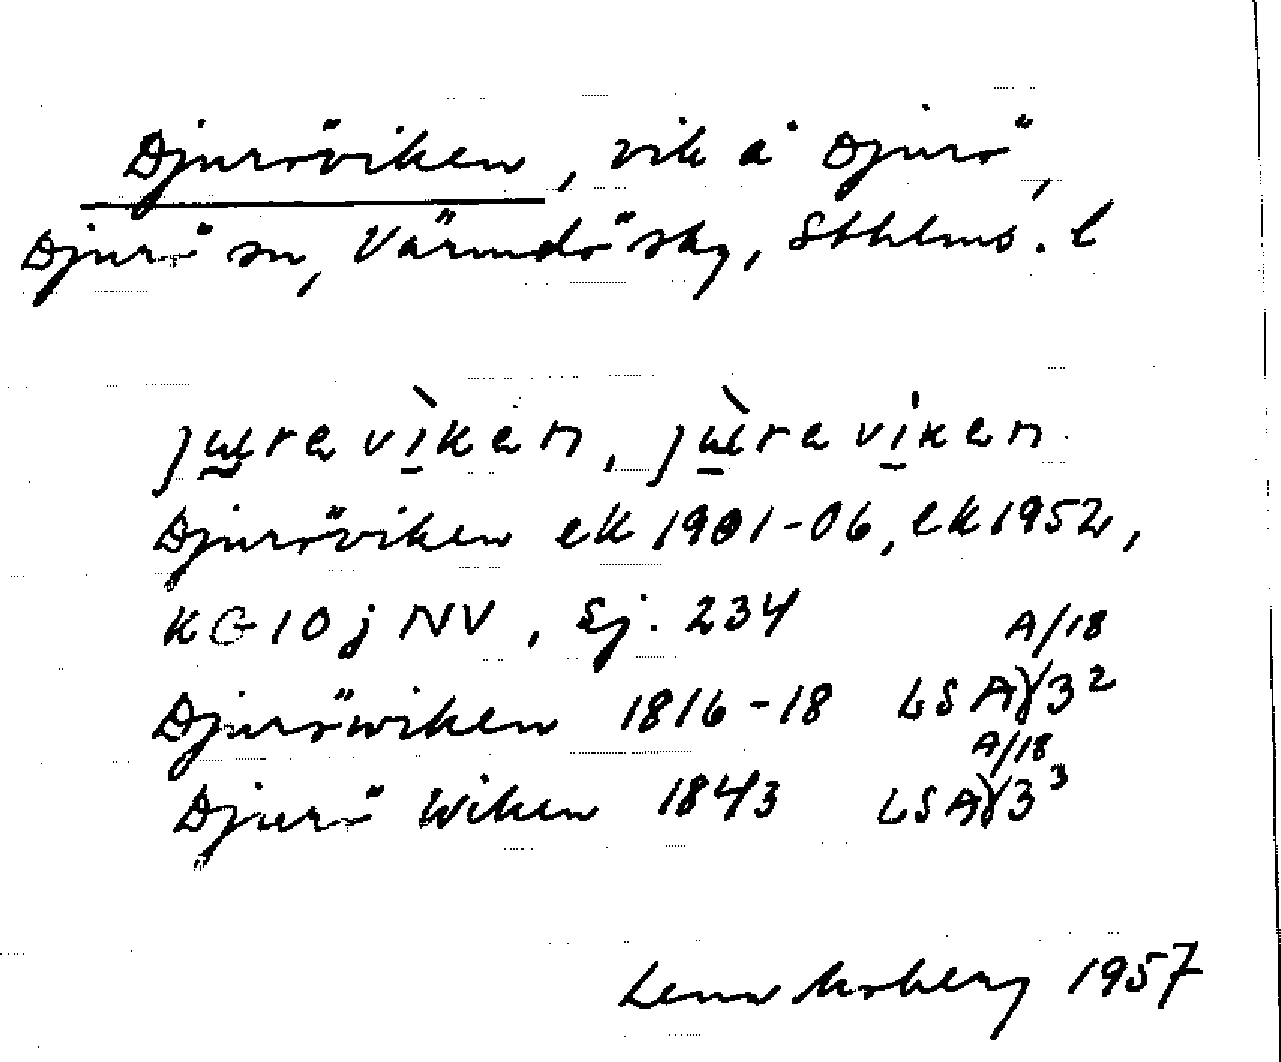 Djuröviken, vik å Djurö,
Djurö sn, Värmdö skg, Sthlms. l
jɯravìken, jɯ̀raviken
Djuröviken ek 1901-06, ek 1952,
KG 10 j NV, Sj. 234
A/18
Djuröwiken 1816-18 LSA γ 3²
A/18
Djurö Wiken 1843 LSA γ 3³
Lena Moberg 1957